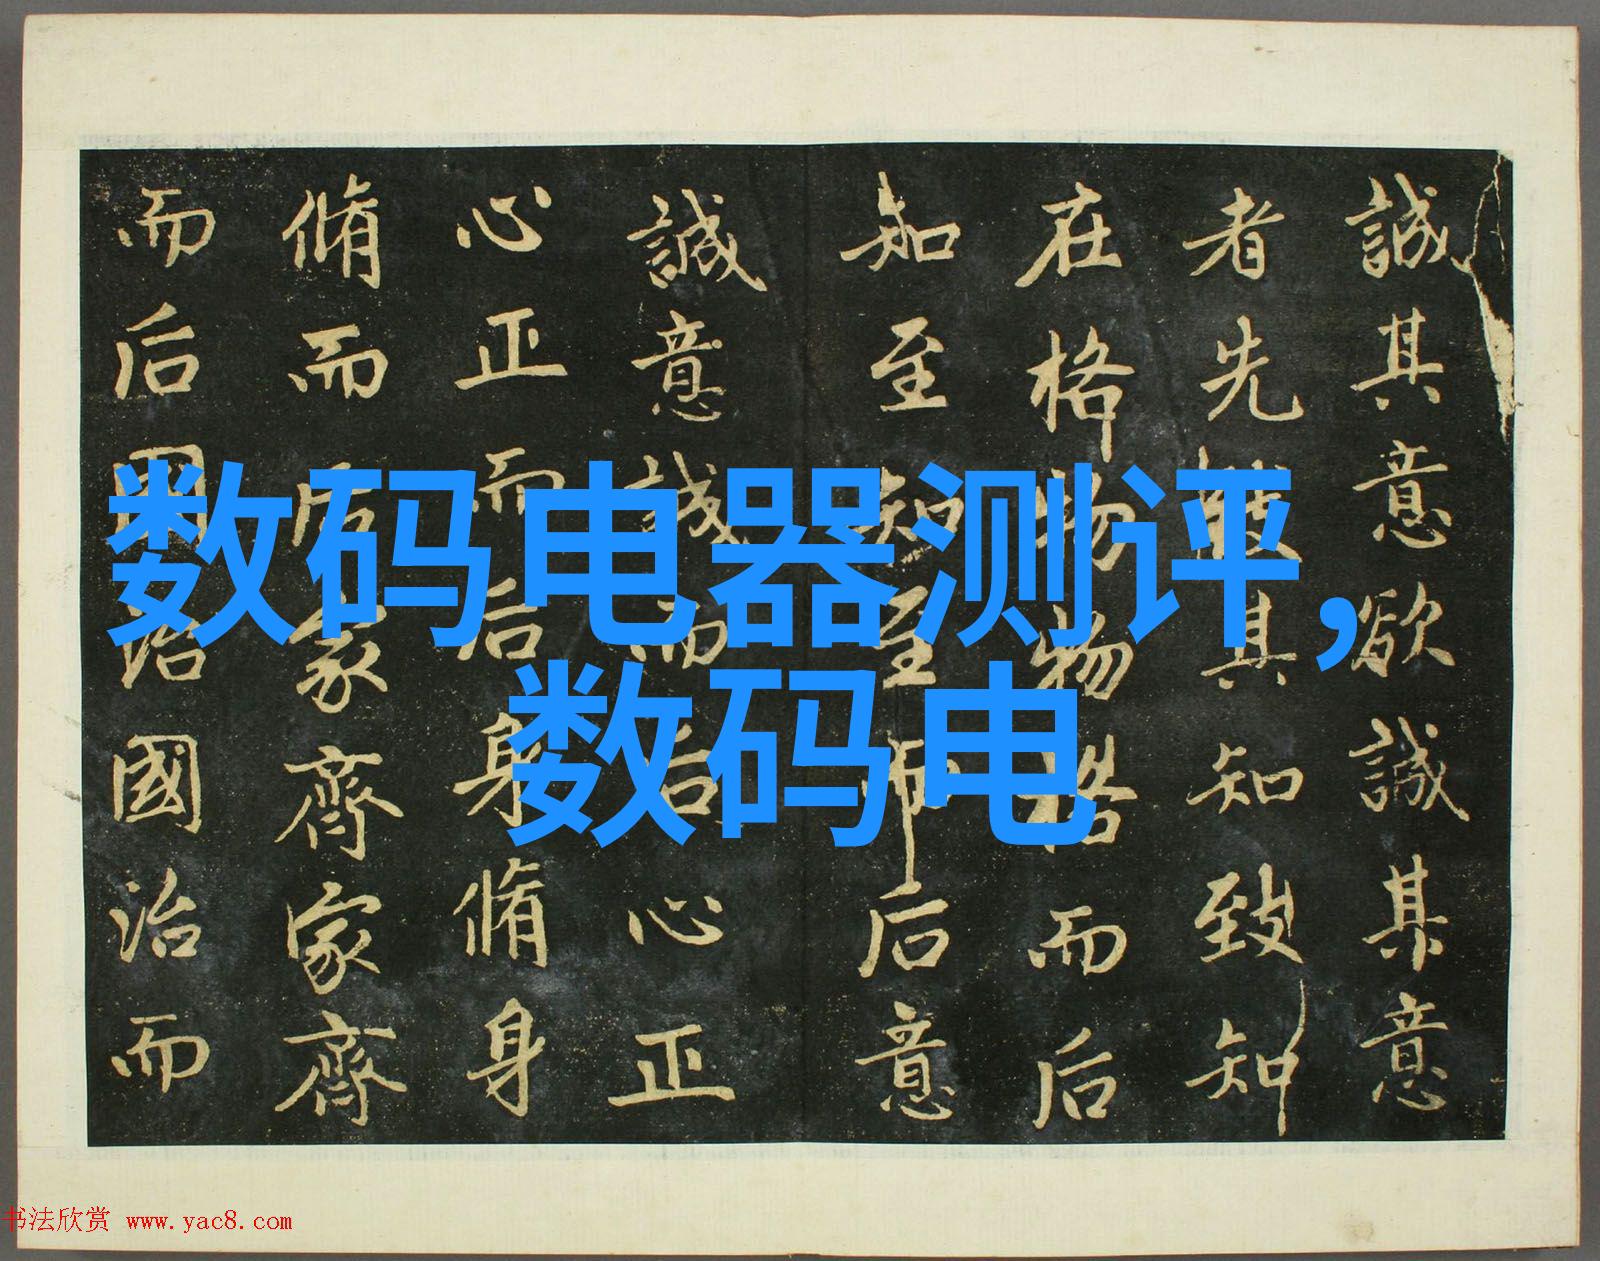 誠其意欲誠其意
者先致其知致知
在格物物格而后
知至知至而后意
誠意誠而后心正
心正而后身脩身
脩而后家齊家齊
而后國治國治而
数码电器测评，
数码电
书法欣赏 www.yac8.com